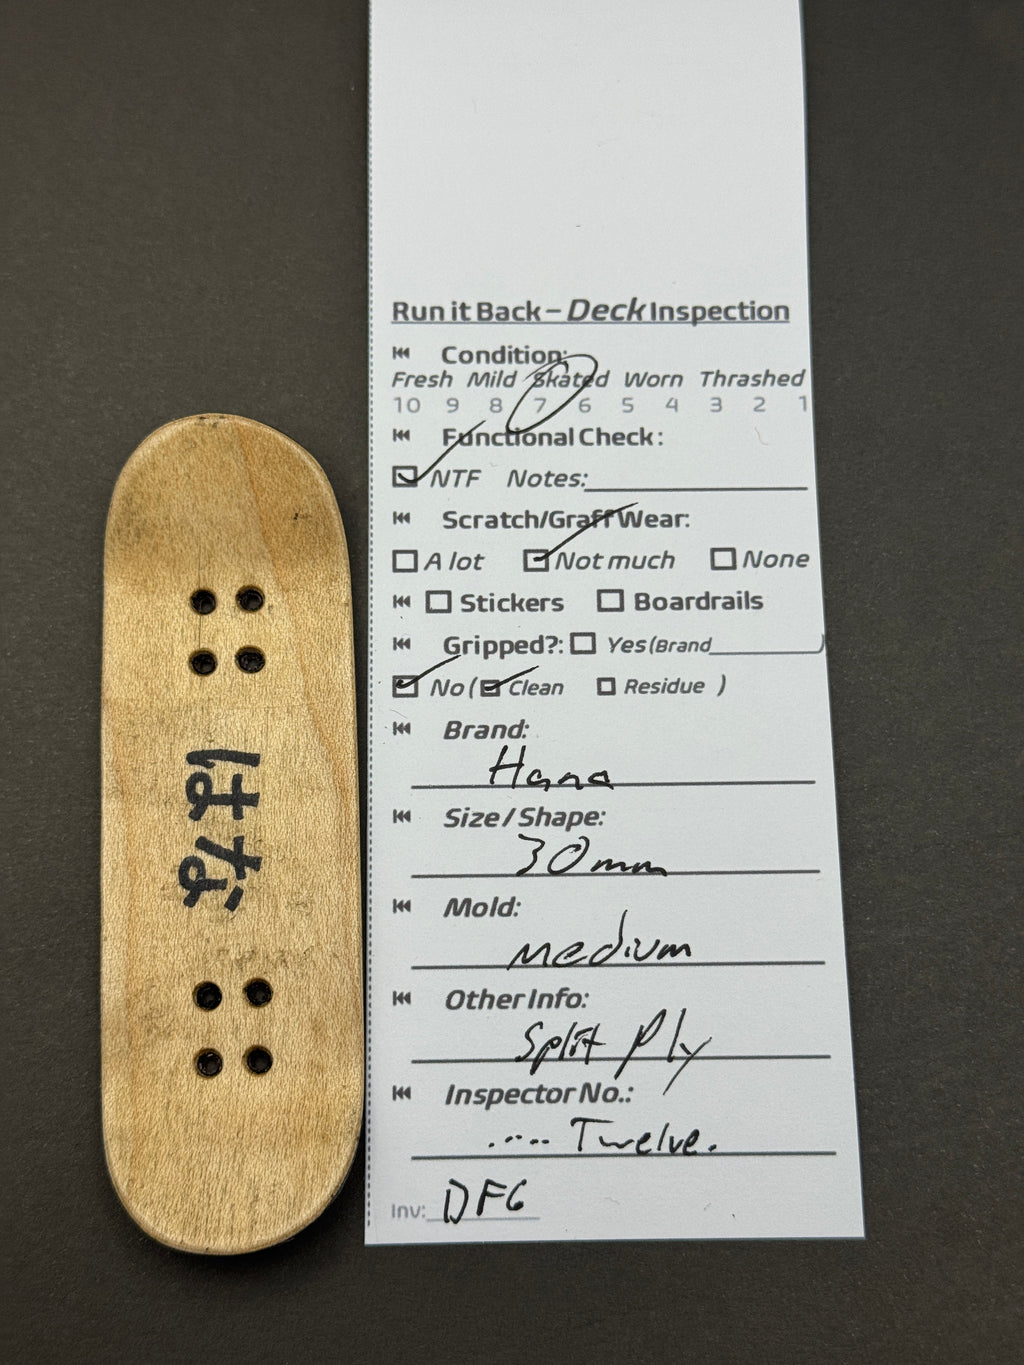 はな
Run it Back – Deck Inspection
Condition:
Fresh Mild Skated Worn Thrashed
10 9 8 7 6 5 4 3 2 1
Functional Check:
NTF Notes:
Scratch/Graff Wear:
A lot Not much None
Stickers Boardrails
Gripped?: Yes (Brand )
No ( Clean Residue )
Brand:
Hana
Size / Shape:
30mm
Mold:
medium
Other Info:
Split Ply
Inspector No.:
.... Twelve.
Inv: DFG